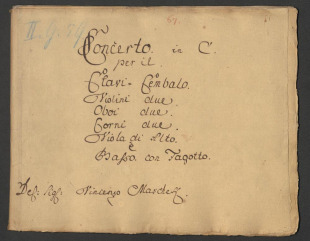 Concerto in C.
per il
Clavi-Cembalo.
Violini due.
Oboi due.
Corni due.
Viola di Alto.
e
Basso con Fagotto.
Del Sigr Vicenzo